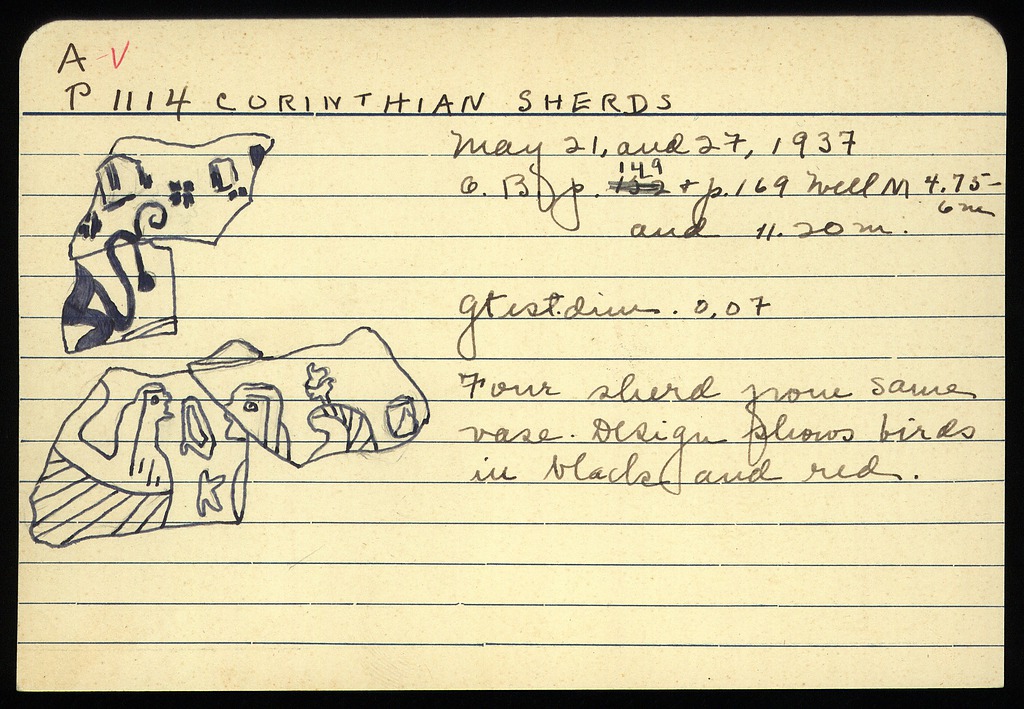 A V
P 1114 CORINTHIAN SHERDS
May 21, and 27, 1937
O. B. p. 149 + p. 169 Well M 4.75-
6m
and 11.20 m.
gtest. dim. 0,07
Four sherd from same
vase. Design shows birds
in black and red.